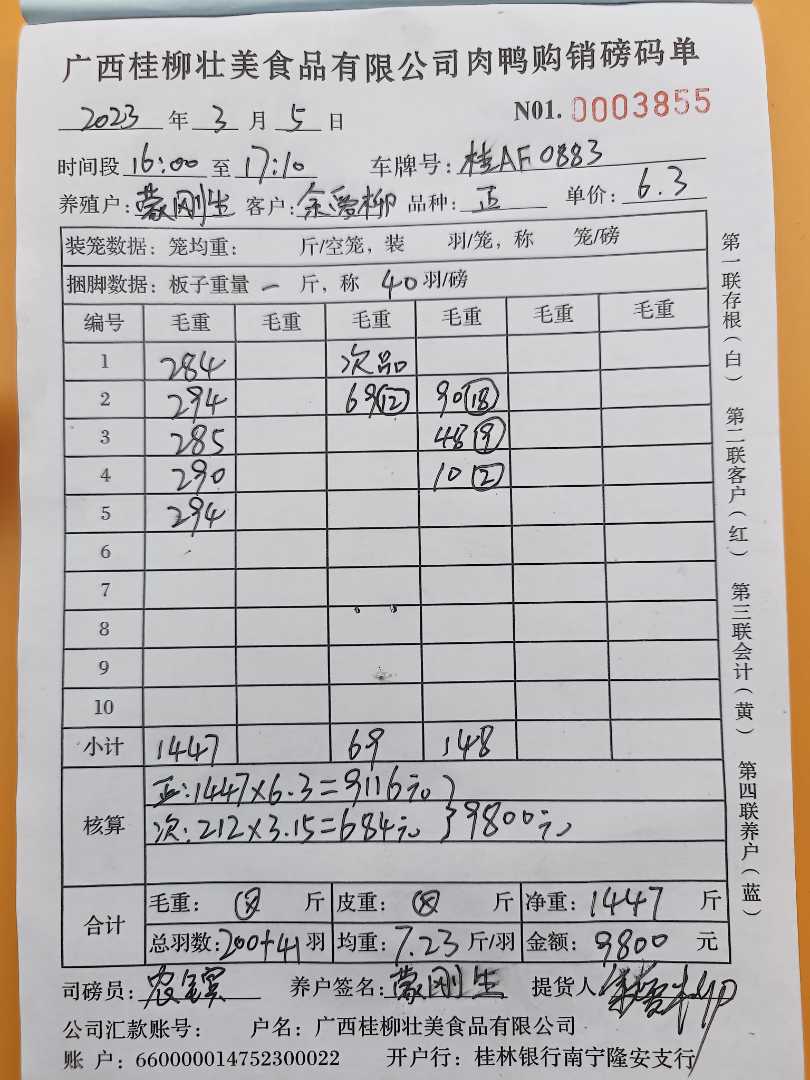 广西桂柳壮美食品有限公司肉鸭购销磅码单
2023 年 3 月 5 日 N01. 0003855
时间段 16:00 至 17:10 车牌号: 桂AF0883
养殖户: 蒙刚生 客户: 余爱柳 品种: 正 单价: 6.3
装笼数据: 笼均重: 斤/空笼, 装 羽/笼, 称 笼/磅
捆脚数据: 板子重量 一 斤, 称 40 羽/磅
编号 毛重 毛重 毛重 毛重 毛重 毛重
1 284 次品
2 294 69(12) 90(18)
3 285 48(9)
4 290 10(2)
5 294
6
7
8
9
10
小计 1447 69 148
核算
正:1447×6.3=9116元}
次:212×3.15=684元}9800元
合计
毛重: 斤 皮重: 斤 净重: 1447 斤
总羽数: 200+41 羽 均重: 7.23 斤/羽 金额: 9800 元
司磅员: 养户签名: 蒙刚生 提货人 余爱柳
公司汇款账号: 户名: 广西桂柳壮美食品有限公司
账户: 660000014752300022 开户行: 桂林银行南宁隆安支行
第一联存根(白) 第二联客户(红) 第三联会计(黄) 第四联养户(蓝)